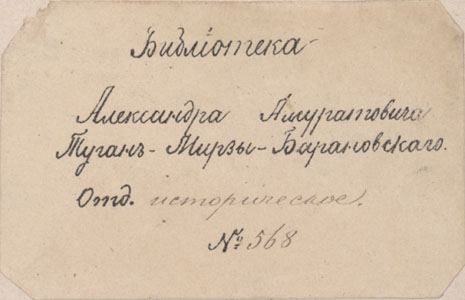 Библіотека
Александра Амуратовича
Туганъ-Мирзы-Барановскаго.
Отд. историческое.
№ 568